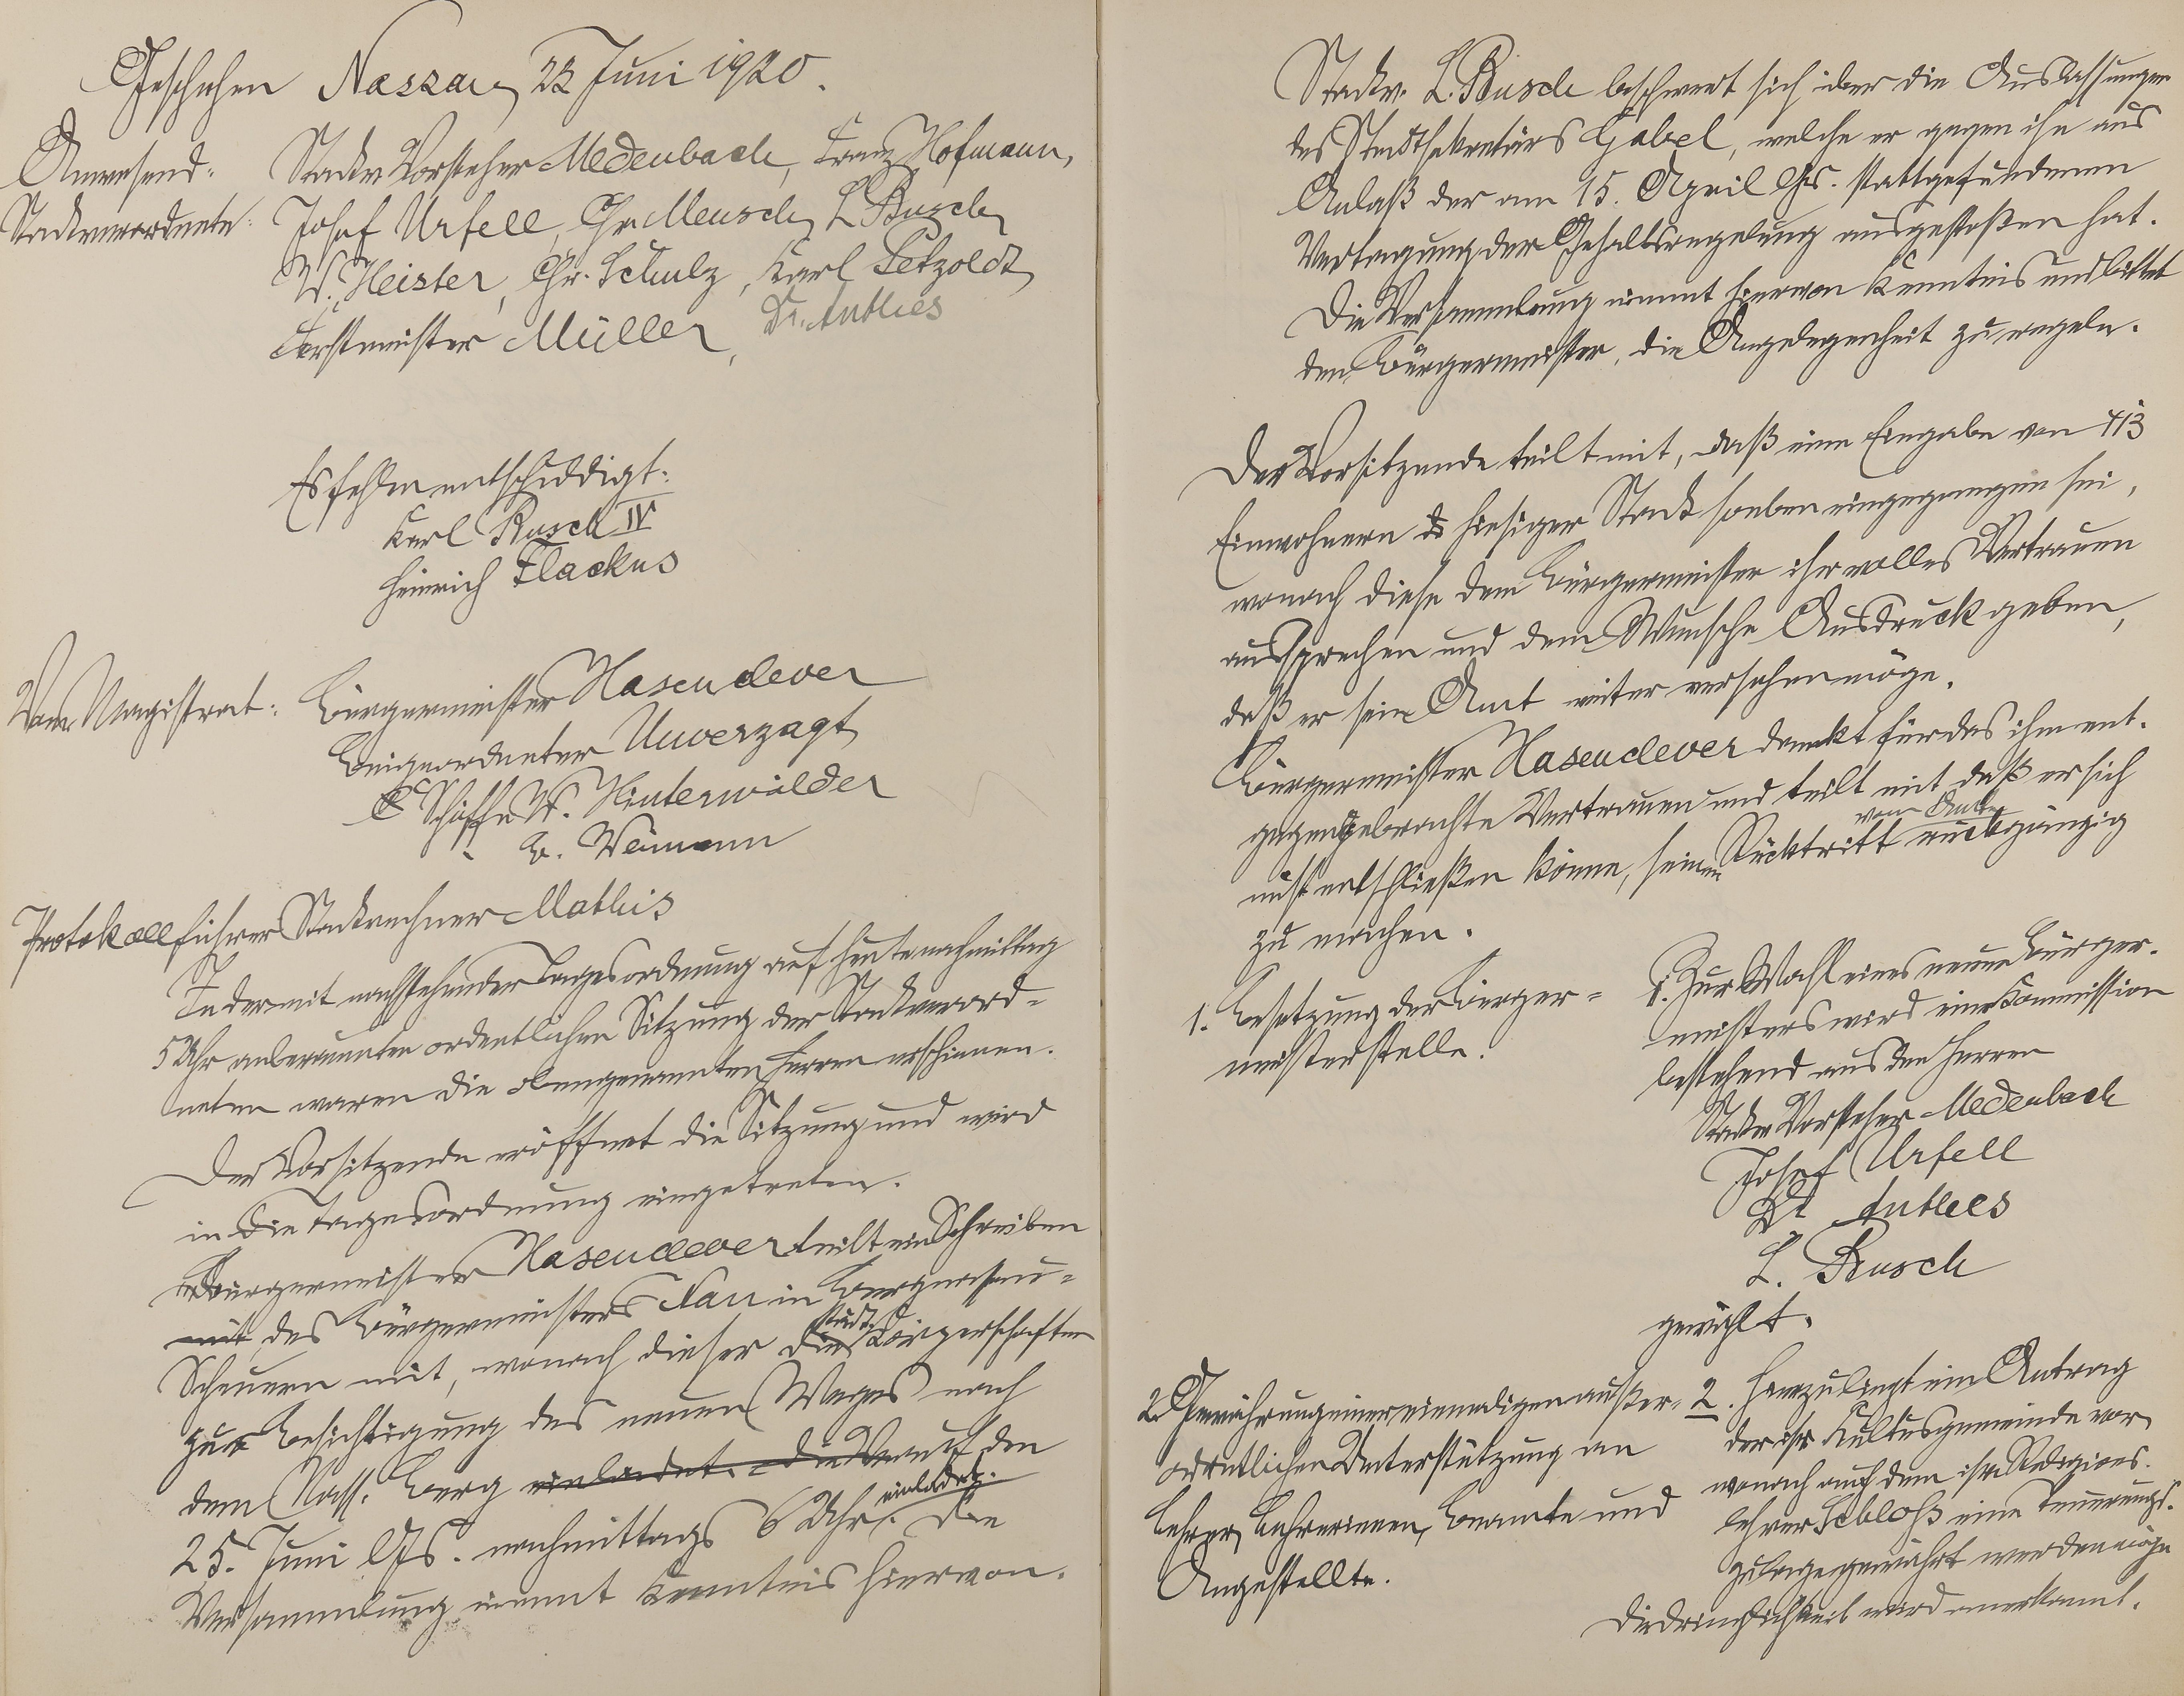 Geschehen Nassau, 23 Juni 1920.
Anwesend: Stadtv. Vorsteher Medenbach, Franz Hofmann,
Stadtverordnete: Josef Urfell, Chr. Meusch, L. Busch,
W. Heister, Chr. Schulz, Karl Petzoldt,
Forstmeister Müller, Dr. Anthes
Es fehlen entschuldigt:
Karl Busch IV
Heinrich Flackus
Vom Magistrat: Bürgermeister Hasenclever
Beigeordneter Unverzagt
Schöffe W. Hinterwälder
" H. Weimann
Protokollführer Stadtrechner Mathis
In der mit nachstehender Tagesordnung auf heute nachmittag
5 Uhr anberaumten ordentlichen Sitzung der Stadtverord=
neten waren die obengenannten Herren erschienen.
Der Vorsitzende eröffnet die Sitzung und wird
in die Tagesordnung eingetreten.
Bürgermeister Hasenclever teilt ein Schreiben
mit des Bürgermeisters Nau in Bergnassau=
Scheuern mit, wonach dieser die städt. Körperschaften
zur Besichtigung des neuen Weges nach
dem Nass. Berg einladet. Die Ver auf den
25. Juni lfs. nachmittags 6 Uhr einladet. Die
Versammlung nimmt Kenntnis hiervon.
Stadtv. L. Busch beschwert sich über die Auslassungen
des Stadtsekretärs Gabel, welche er gegen ihn aus
Anlaß der am 15. April lfs. stattgefundenen
Vertagung der Gehaltsregelung ausgestoßen hat.
Die Versammlung nimmt hiervon Kenntnis und bittet
den Bürgermeister, die Angelegenheit zu regeln.
Der Vorsitzende teilt mit, daß eine Eingabe von 413
Einwohnern hiesiger Stadt soeben eingegangen sei,
wonach diese dem Bürgermeister ihr volles Vertrauen
aussprechen und dem Wunsche Ausdruck geben,
daß er sein Amt weiter versehen möge.
Bürgermeister Hasenclever dankt für das ihm ent=
gegengebrachte Vertrauen und teilt mit daß er sich
nicht entschließen könne, seinen Rücktritt vom Amte rückgängig
zu machen.
1. Besetzung der Bürger=
meisterstelle.
1. Zur Wahl eines neuen Bürger=
meisters wird eine Kommission
bestehend aus den Herren
Stadtv. Vorsteher Medenbach
Josef Urfell
Dr. Anthes
L. Busch
gewählt.
2. Gewährung einer einmaligen außer=
ordentlichen Unterstützung an
Lehrer, Lehrerinnen, Beamte und
Angestellte.
2. Hierzu liegt ein Antrag
der isr. Kultusgemeinde vor,
wonach auch dem isr. Religions=
lehrer Schloß eine Teuerungs=
zulage gewährt werden möge
Die Dringlichkeit wird anerkannt.